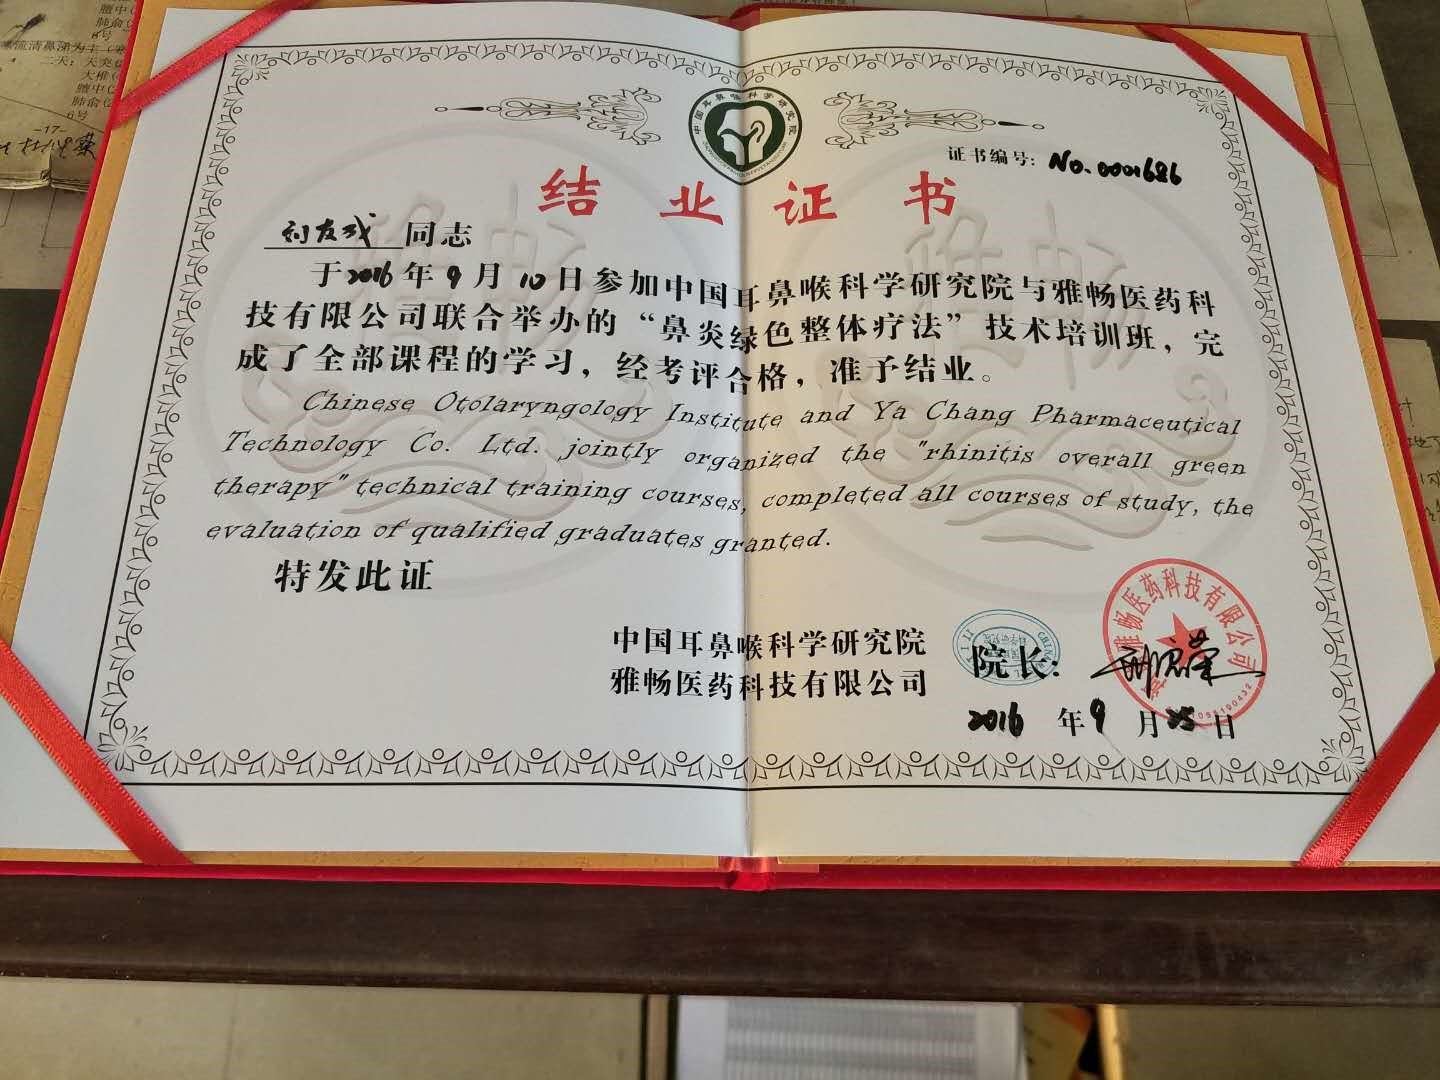 膻中
肺俞
6号
嗽流清鼻涕为主
二天：天突
大椎
膻中
肺俞
6号
-17-
中国耳鼻喉科学研究院
证书编号：No.0001686
结业证书
刘友成 同志
于2016年9月10日参加中国耳鼻喉科学研究院与雅畅医药科
技有限公司联合举办的“鼻炎绿色整体疗法”技术培训班，完
成了全部课程的学习，经考评合格，准予结业。
Chinese Otolaryngology Institute and Ya Chang Pharmaceutical
Technology Co. Ltd. jointly organized the "rhinitis overall green
therapy" technical training courses, completed all courses of study, the
evaluation of qualified graduates granted.
特发此证
中国耳鼻喉科学研究院
雅畅医药科技有限公司
院长：
雅畅医药科技有限公司
2016年9月25日